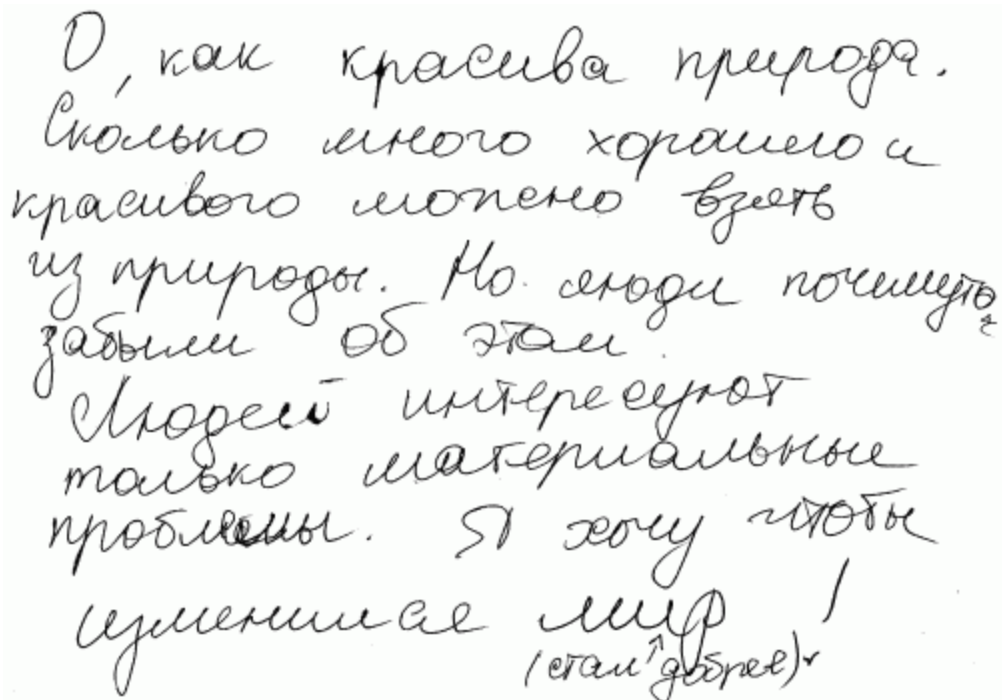 О, как красива природа.
Сколько много хорошего и
красивого можно взять
из природы. Но люди почимуто
забыли об этом.
Людей интересуют
только материальные
проблемы. Я хочу чтобы
изменился мир !
(стал добрее)